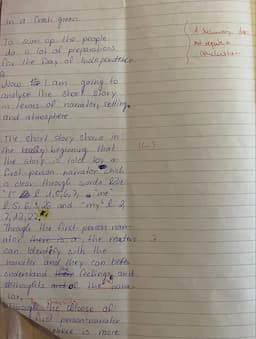 in a fresh green.
To sum up the people
do a lot of preparations
for the Day of Independence.
Now I am going to
analyse the short story
in terms of narrator, setting
and atmosphere.
The short story shows in
the beginning that
the story is told by a
first person narrator which
is clear through words like
"I" l. 1,5,6,7, "me"
l. 5, 6, 9, 26 and "my" l. 2,
7, 13, 27.
Though the first person nar-
rator the readers
can identify with the
narrator and they can better
understand feelings and
thoughts of the narra-
tor.
Through the choose of
first person narrator
there is more
A summary does
not require a
conclusion